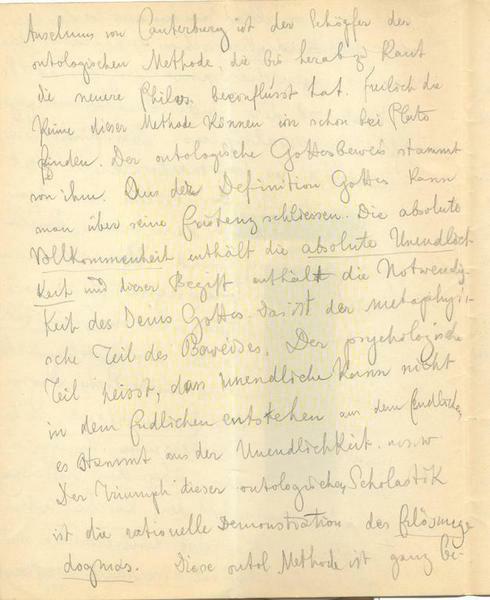 Anselmus von Canterbury ist der Schöpfer der
ontologischen Methode, die bis herab zu Kant
die neuere Philos. beeinflüsst hat. Freilich die
Keime dieser Methode können wir schon bei Plato
finden. Der ontologische Gottesbeweis stammt
von ihm. Aus der Definition Gottes kann
man über seine Existenz schliessen. Die absolute
Vollkommenheit enthält die absolute Unendlich-
keit und dieser Begriff enthält die Notwendig-
keit des Seins Gottes. Das ist der metaphysi-
sche Teil des Beweises. Der psychologische
Teil heisst, dass Unendliche kann nicht
in dem Endlichen entstehen aus dem Endliche,
es stammt aus der Unendlichkeit. u.s.w.
Der Triumph dieser ontologischen Scholastik
ist die rationelle Demonstration des Erlösungs
dogmas. Diese ontol Methode ist ganz be-